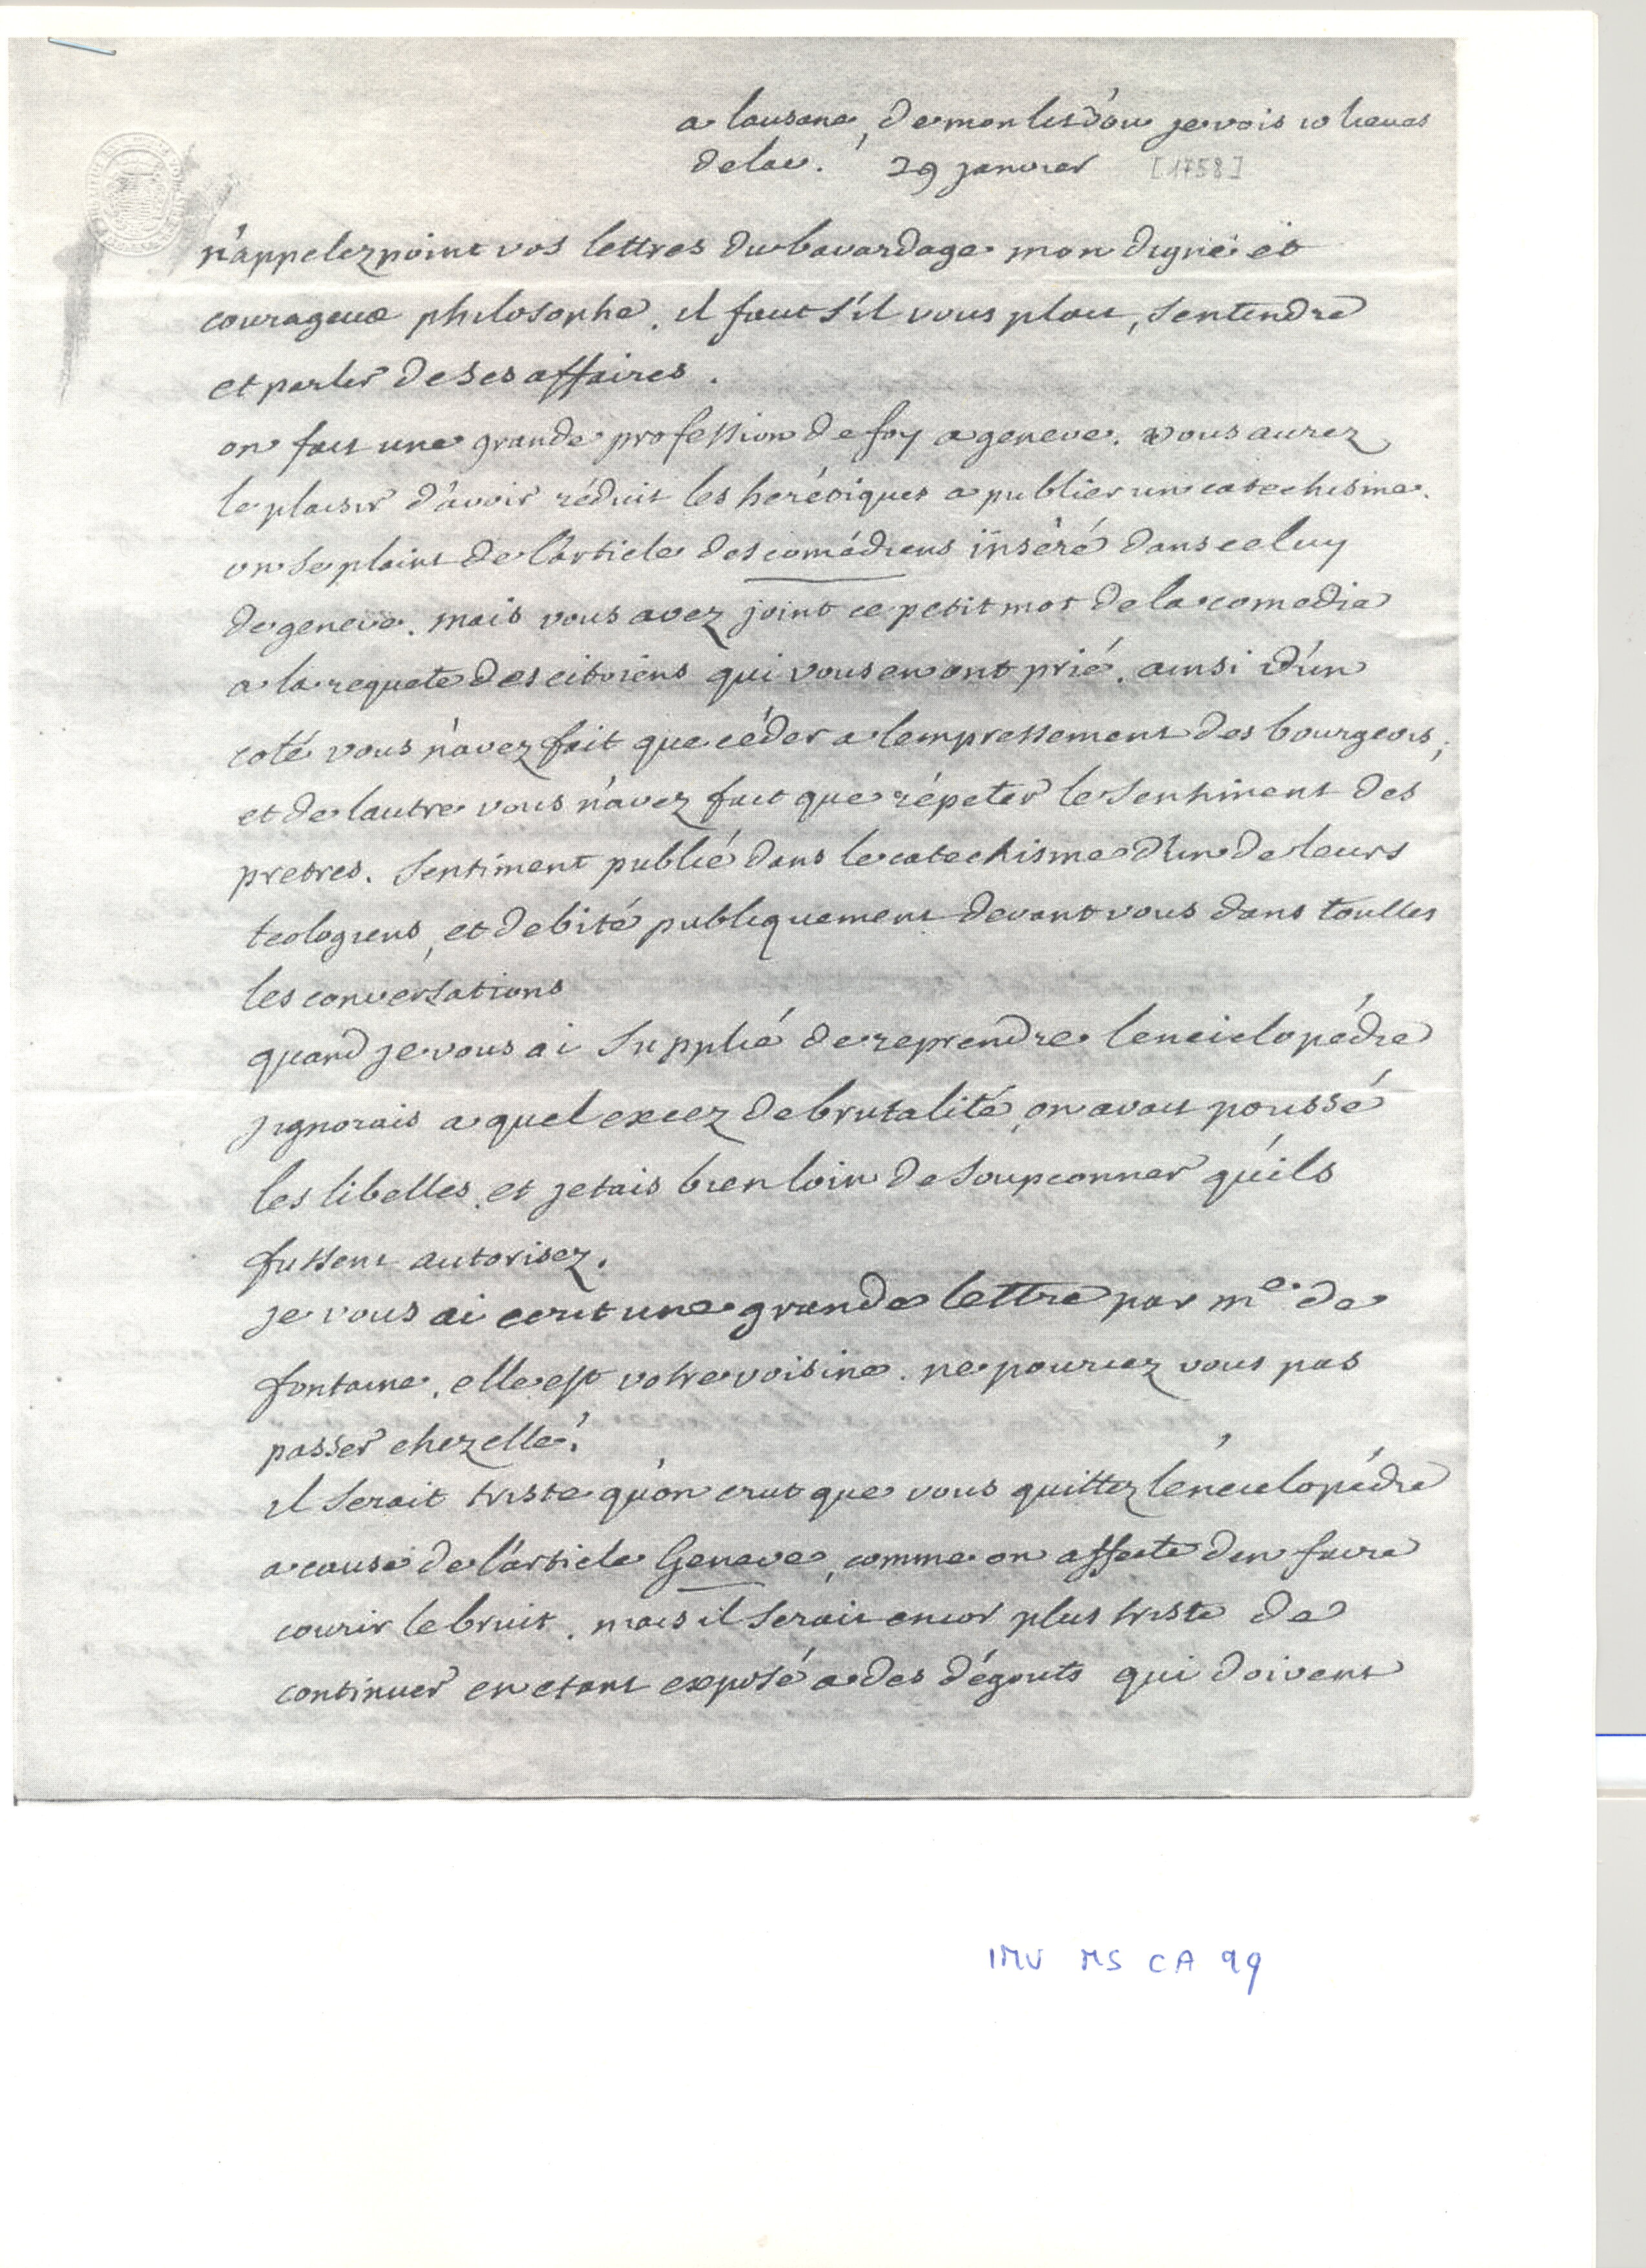 a lausane, de mon lit d'ou je vois 10 lieues
de lac. 29 janvier [1758]
n'appelez point vos lettres du bavardage mon digne et
courageux philosophe. il faut s'il vous plait, s'entendre
et parler de ses affaires.
on fait une grande profession de foy a geneve. vous aurez
le plaisir d'avoir réduit les herétiques a publier un catechisme.
on se plaint de l'article des comédiens inséré dans celuy
de geneve. mais vous avez joint ce petit mot de la comedie
a la requete des citoiens qui vous en ont prié. ainsi d'un
coté vous n'avez fait que céder a lempressement des bourgeois;
et de lautre vous n'avez fait que répeter le sentiment des
pretres. sentiment publié dans le catechisme d'un de leurs
teologiens, et debité publiquement devant vous dans touttes
les conversations
quand je vous ai supplié de reprendre lenciclopédie
j'ignorais a quel excez de brutalité on avait poussé
les libelles. et jetais bien loin de soupconner qu'ils
fussent autorisez.
je vous ai ecrit une grande lettre par me de
fontaine. elle est votre voisine. ne pouriez vous pas
passer chez elle?
il serait triste qu'on crut que vous quittez l'énciclopédie
a cause de l'article Geneve, comme on affecte d'en faire
courir le bruit. mais il serait encor plus triste de
continuer en etant exposé a des dégouts qui doivent
IMV MS CA 99